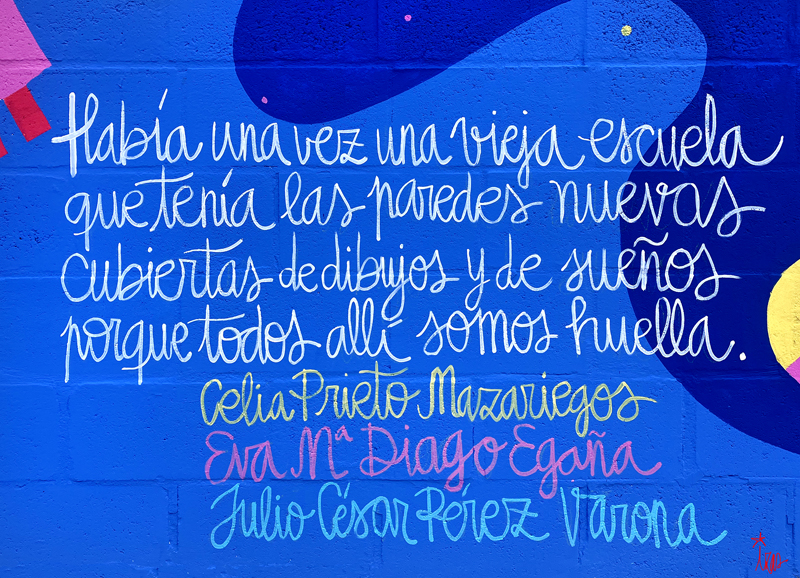 Había una vez una vieja escuela
que tenía las paredes nuevas
cubiertas de dibujos y de sueños
porque todos allí somos huella.
Celia Prieto Mazariegos
Eva Mª Diago Egaña
Julio César Pérez Varona